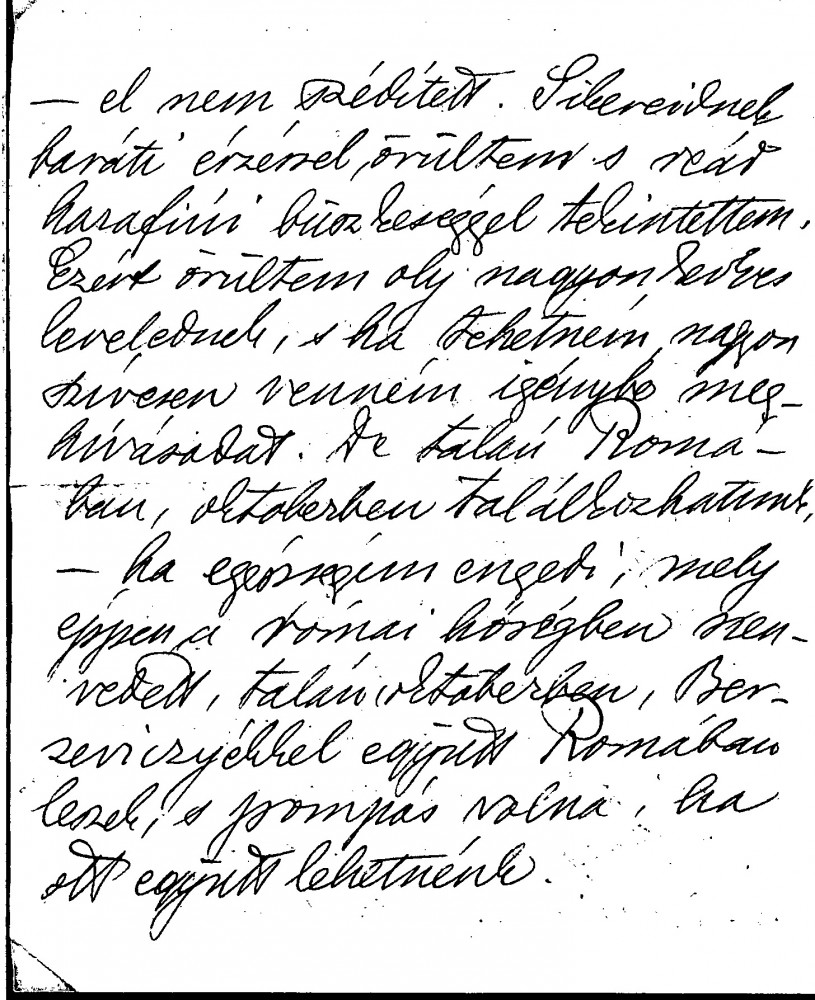 — el nem szédített. Sikereidnek
baráti érzéssel örültem s reád
hazafiúi büszkeséggel tekintettem.
Ezért örültem oly nagyon kedves
levelednek, s ha tehetném, nagyon
szívesen venném igénybe meg-
hívásodat. De talán Romá-
ban, októberben találkozhatunk,
— ha egészségem engedi, mely
éppen a római hőségben szen-
vedett, talán októberben, Ber-
zeviczyékkel együtt Romában
leszek, s pompás volna, ha
ott együtt lehetnénk.